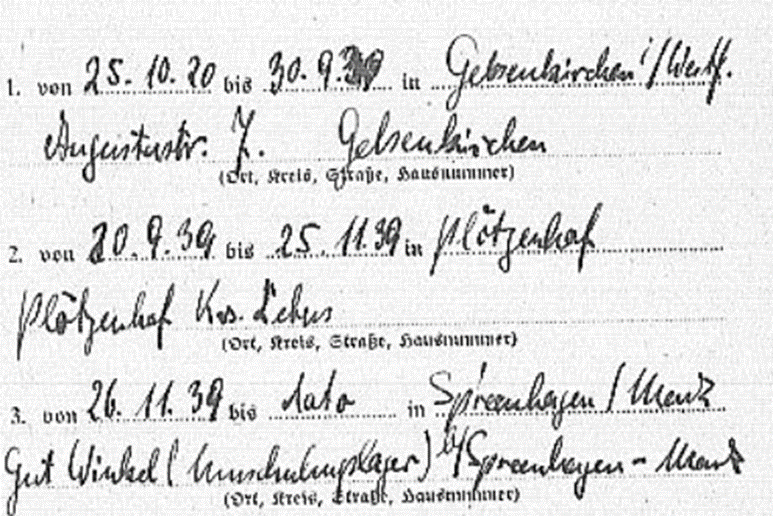 1. von 25.10.20 bis 30.9.39 in Gelsenkirchen /Westf.
Augustastr. 7. Gelsenkirchen
(Ort, Kreis, Straße, Hausnummer)
2. von 20.9.39 bis 25.11.39 in Plötzenhof
Plötzenhof Krs. Lebus
(Ort, Kreis, Straße, Hausnummer)
3. von 26.11.39 bis dato in Spreenhagen / Mark
Gut Winkel (Umschulungslager) b/Spreenhagen - Mark
(Ort, Kreis, Straße, Hausnummer)